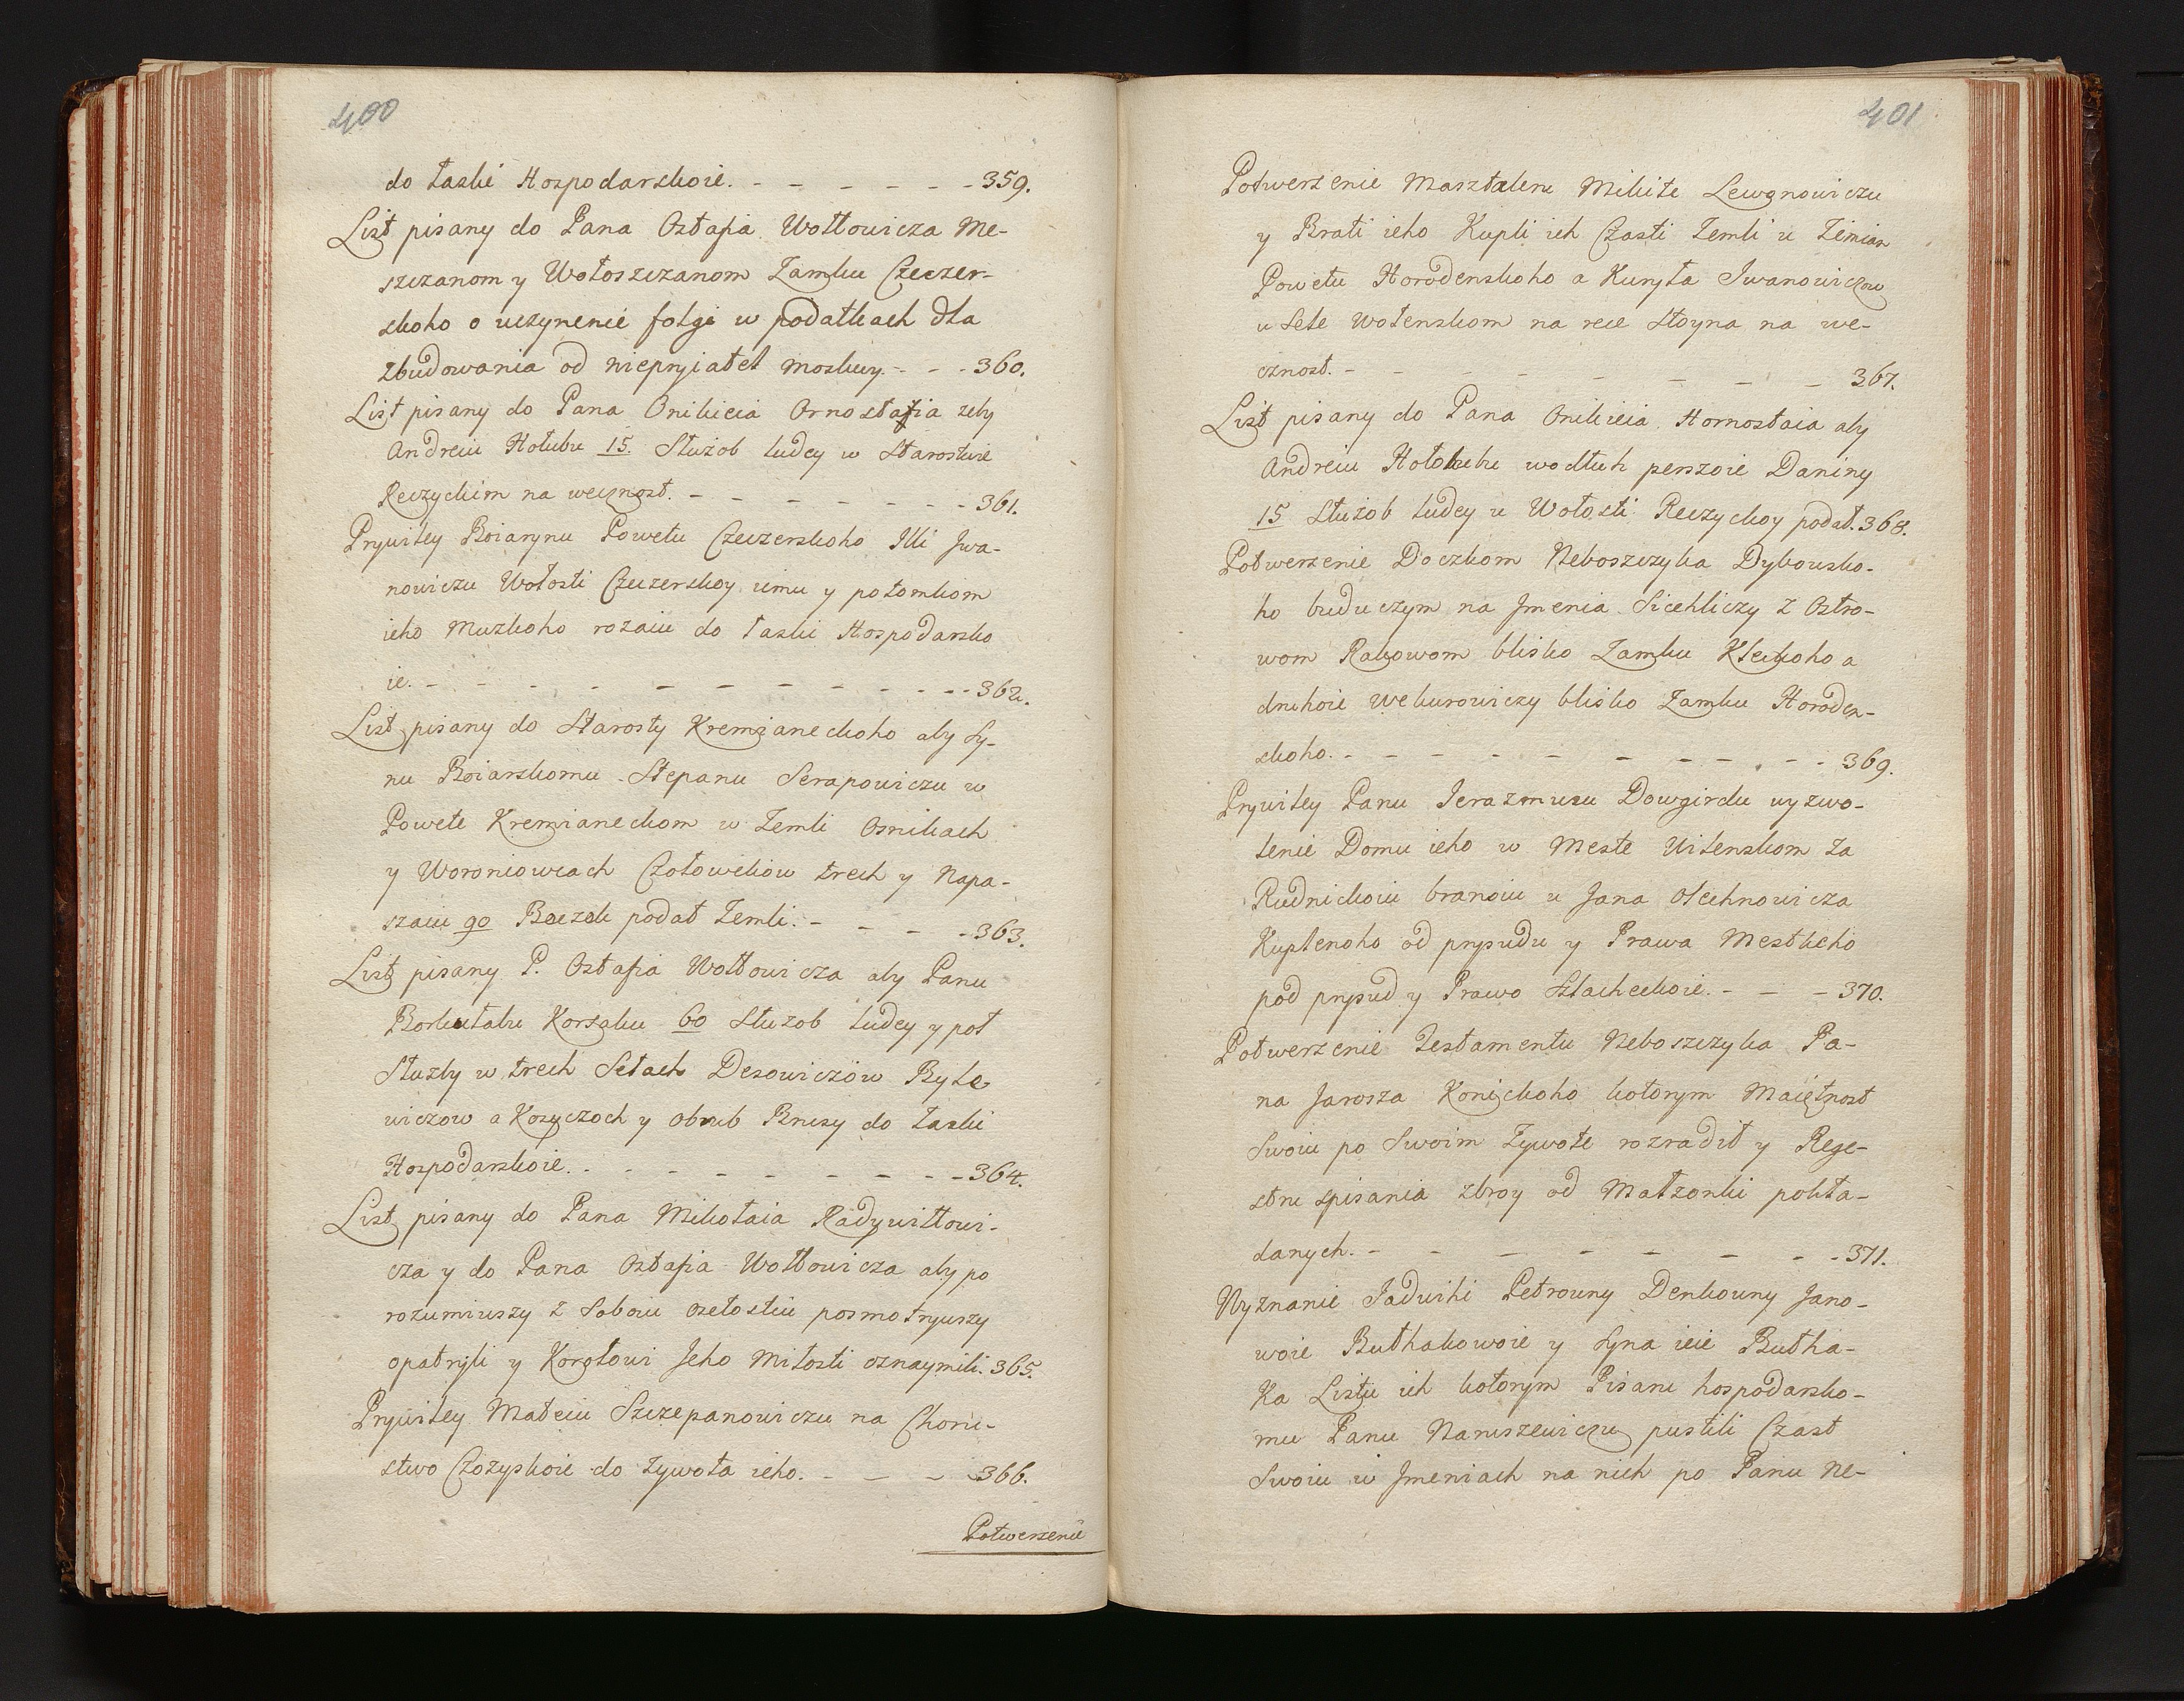 400
do łaski Hospodarskoie. - - - - - - 359.
List pisany do Pana Ostafia Wołłowicza Me-
szczanom y Wołoszczanom Zamku Czeczer-
skoho o uczynenie folgi w podatkach dla
zbudowania od niepryiatel Moskwy. - - - 360.
List pisany do Pana Onikieia Ornostaia zeby
Andreiu Hołubu 15. Służob ludey w Starostwie
Reczyckim na wecznost. - - - - - - - 361.
Prywiley Boiarynu Powetu Czeczerskoho Illi Iwa-
nowiczu Wołosti Czeczerskoy iemu y potomkom
ieho Muzkoho rozaiu do łaski Hospodarsko
ie. - - - - - - - - - - - 362.
List pisany do Starosty Kremianeckoho aby Sy-
nu Boiarskomu Stepanu Serapowiczu w
Powete Kremianeckom w Zemli Osnikach
y Woroniowcach Człowekow trech y Napa-
szaiu 90 Boczek podał Zemli. - - - - 363.
List pisany P. Ostafia Wołłowicza aby Panu
Borkułabu Korsaku 60 Służob ludey y poł
Służby w trech Sełach Desowiczow Byle
wiczow a Kozyczoch y obrub Brusy do Łaski
Hospodarskoie. - - - - - - - - 364.
List pisany do Pana Mikołaia Radywiłłowi-
cza y do Pana Ostafia Wołłowicza aby po
rozumiwszy z Soboiu osełostiu posmotrywszy
opatryli y Korolowi Jeho Miłosti oznaymili. 365.
Prywiley Mateiu Szczepanowiczu na Choru-
stwo Czozyskoie do Zywota ieho. - - - - 366.
Potwerzenie
401
Potwerzenie Masztaleru Mikite Lewonowiczu
y Brati ieho Kupli ich Czasti Zemli u Zemian
Powetu Horodenskoho a Kuryła Iwanowiczow
u Sele Wołenskom na rece Łoyna na we-
cznost. - - - - - - - - 367.
List pisany do Pana Onikieia Hornostaia aby
Andreiu Hołobubu wodłuh perszoie Daniny
15 Służob ludey u Wołosti Reczyckoy podał. 368.
Potwerzenie Doczkom Neboszczyka Dybowsko-
ho buduczym na Jmenia Siechliczy z Ostro-
wom Rakowom blisko Zamku Kłeckoho a
druhoie Wekurowiczy blisko Zamku Horoden-
skoho. - - - - - - - - - - 369.
Prywiley Panu Jerazmusu Dowgirdu wyzwo-
lenie Domu ieho w Meste Wilenskom za
Rudnickoiu branoiu u Jana Olechnowicza
Kuplenoho od prysudu y Prawa Mestskoho
pod prysud y Prawo Szlacheckoie. - - - 370.
Potwerzenie Testamentu Neboszczyka Pa-
na Jarosza Konickoho kotorym Maiętnost
Swoiu po Swoim Zywote rozradił y Rege-
stru spisania zbroy od Małzonki pokła-
danych. - - - - - - - - 371.
Wyznanie Jadwihi Petrowny Denkowny Jano-
woie Buthakowoie y syna ieie Butha-
ka Listu ich kotorym Pisaru hospodarsko-
mu Panu Naruszewiczu pustili Czast
Swoiu w Jmeniach na nich po Panu Ne-